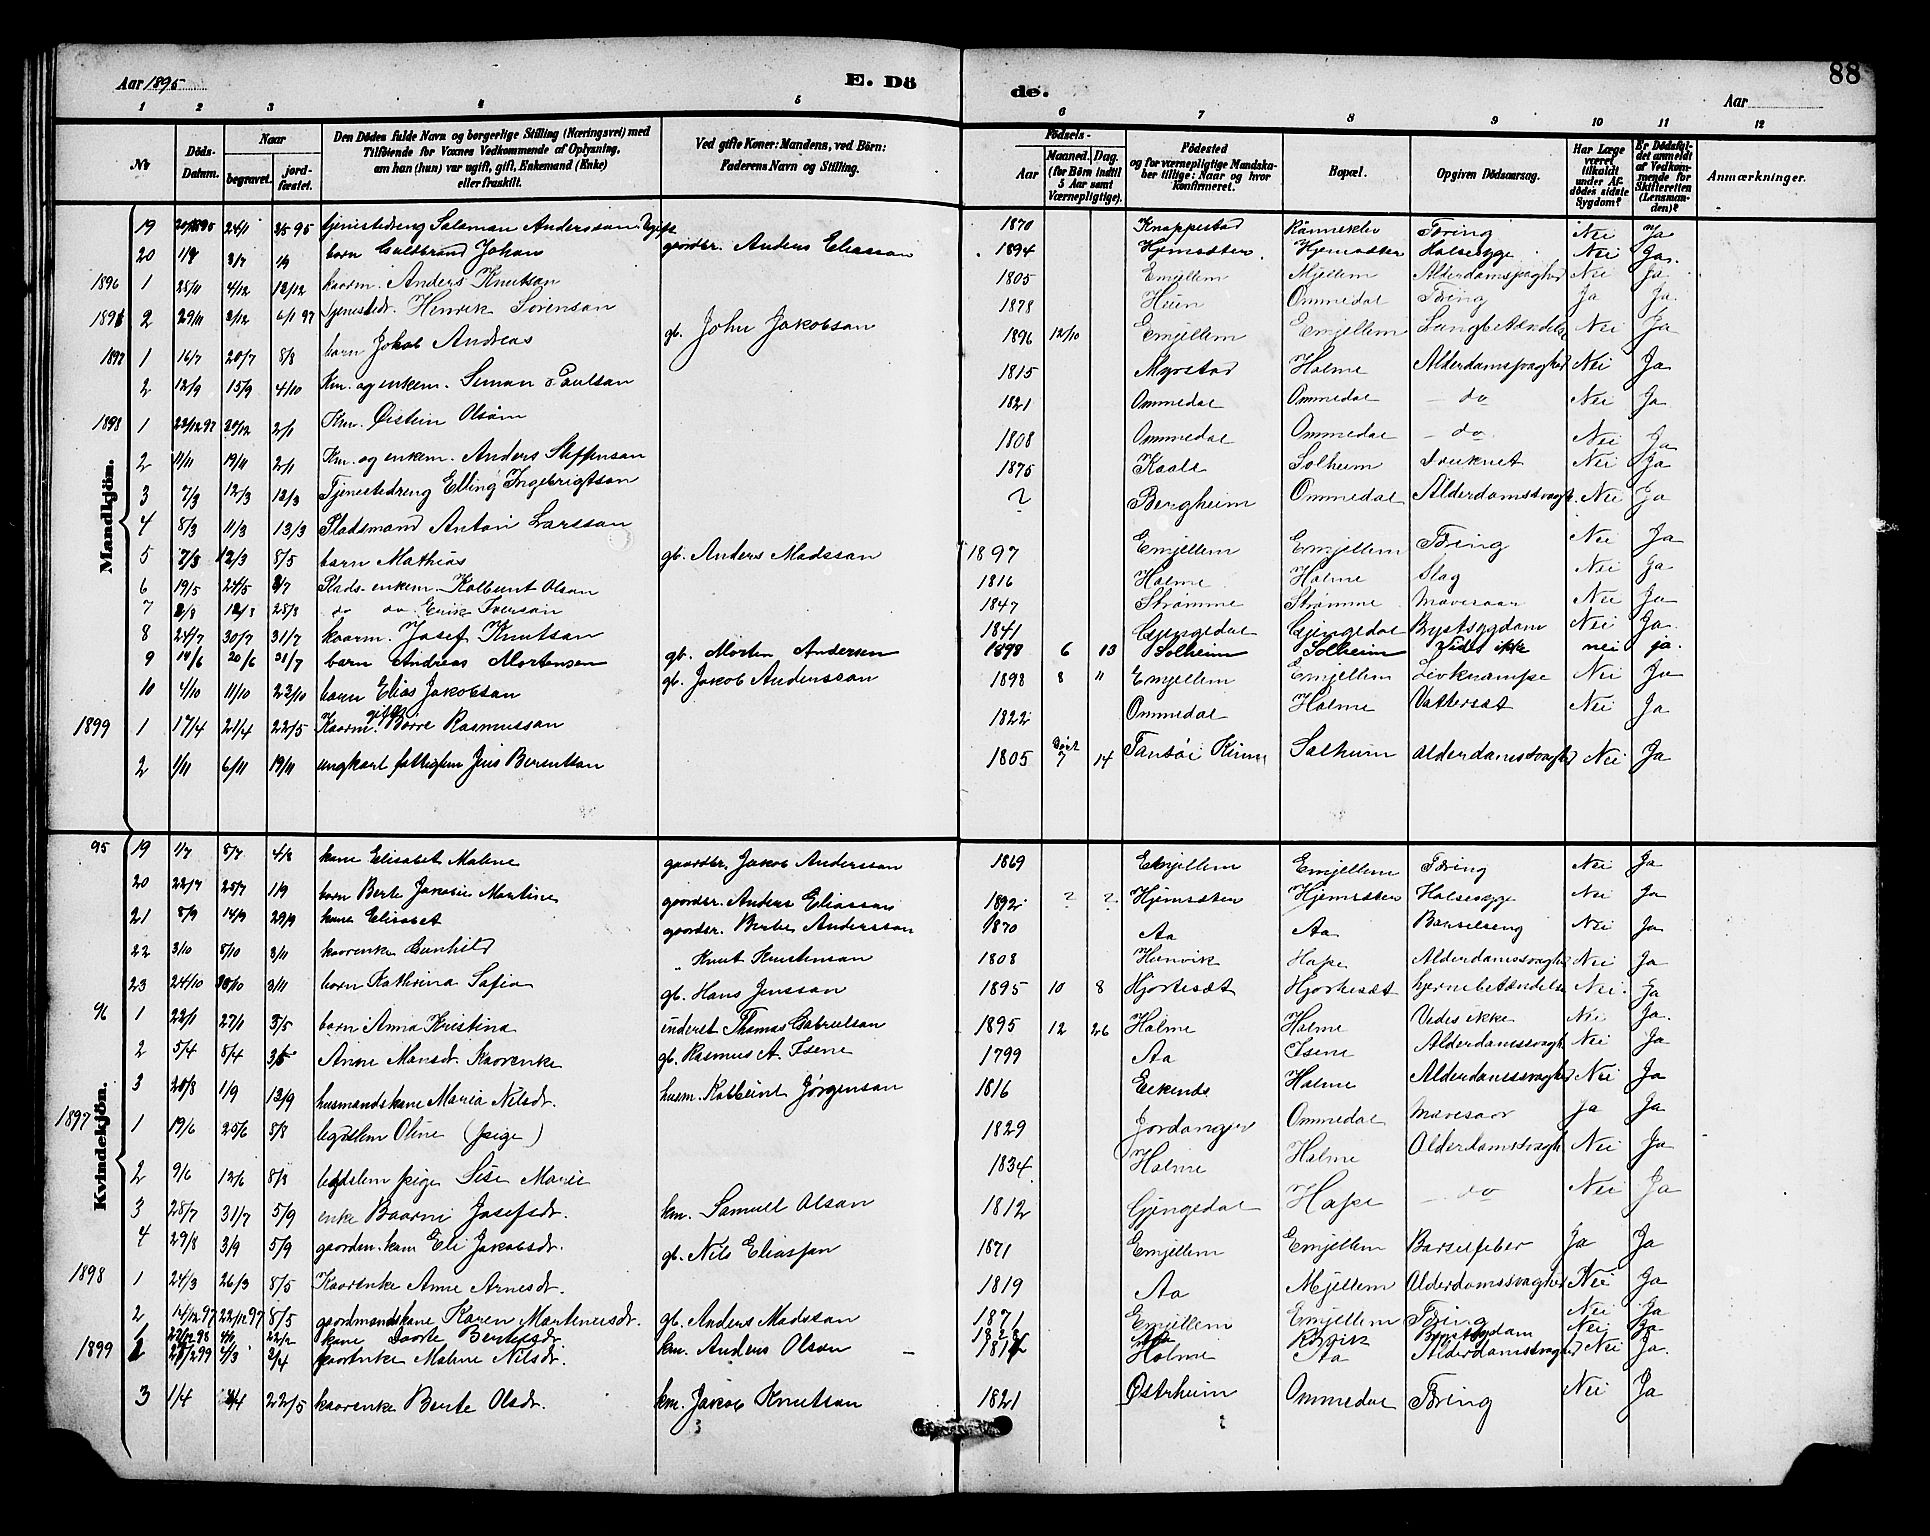 88
Aar 1895 E. Dö de. Aar
1 2 3 4 5 6 7 8 9 10 11 12
No Döds-Datum. Naar begravet. jordfæstet. Den Dödes fulde Navn og borgerlige Stilling (Næringsvei) med Tilföiende for Voxnes Vedkommende af Oplysning, om han (hun) var ugift, gift, Enkemand (Enke) eller fraskilt. Ved gifte Koner: Mandens, ved Börn: Faderens Navn og Stilling. Födsels- Aar Maaned. Dag. (for Börn indtil 5 Aar samt Værnepligtige). Födested og for værnepligtige Mandskaber tillige: Naar og hvor konfirmeret. Bopæl. Opgiven Dödsaarsag. Har Læge været tilkaldt under Afdödes sidste Sygdom? Er Dödsfaldet anmeldt af Vedkommende for Skifteretten (Lensmanden)? Anmærkninger.
Mandkjön.
19 24/11 25 95 tjenestedreng Salamon Anderssan Ugift 1870 Knappestad Rünneklev Tæring Nei Ja
20 1/7 3/7 barn Guldbrand Johan gaardbr. Anders Eliassan 1894 Hjemsæter Hjemsæter Halsesyge Nei Ja
1896 1 25/11 4/12 12/12 kaarm. Anders Knutsan 1805 Emjellem Mjellem Alderdomssvaghed Nei Ja
1896 2 29/11 2/12 6/1 97 tjenestedr. Henrik Sörensan 1878 Heien Ommedal Tæring Ja Ja
1897 1 16/7 20/7 8/8 barn Jakob Andreas gb. John Jakobsan 1896 12/10 Emjellem Emjellem Lungbetændelse Nei Ja
2 12/9 15/9 4/10 Km. og enkem. Simon Paulsan 1815 Myrstad Holme Alderdomssvaghed Nei Ja
1898 1 22/12 97 30/12 2/1 Km. Östein Olsön 1821 Ommedal Ommedal do Nei Ja
2 11/11 19/11 2/11 Km. og enkem. Anders Steffensan 1808 Ommedal Ommedal do Nei Ja
3 7/3 12/3 12/3 Tjenestedreng Elling Ingebrigtsan 1875 Kaale Solheim druknet Nei Ja
4 8/3 11/3 13/3 Pladsmand Anton Larssan ? Bergheim Ommedal Alderdomssvagh. Nei Ja
5 7/3 12/3 8/5 barn Mathias gb. Anders Madssan 1897 Emjellem Emjellem Tæring Nei Ja
6 19/5 24/5 8/7 Plads. enkem. Kolbeint Olsan 1816 Holme Holme Slag Nei Ja
7 2/8 12/8 28/8 do do Erik Iversan 1847 Strömme Strömme Mavesaar Nei Ja
8 24/7 30/7 31/7 kaarm. Josef Knutsan 1841 Gjengedal Gjengedal Brystsygdom Nei Ja
9 14/6 20/6 31/7 barn Andreas Mortensen gb. Morten Andersen 1898 6 13 Solheim Solheim Vides ikke nei ja.
10 4/10 11/10 23/10 barn Elias Jakobsan gb. Jakob Anderssan 1898 8 " Emjellem Emjellem Livkrampe Nei Ja
1899 1 17/4 21/4 22/5 Kaarm. gift Börre Rasmussan 1822 Ommedal Holme Vattersot Nei Ja
2 1/11 6/11 19/11 ungkarl fattiglem Jens Berentsan 1805 döbt 7 14 Solheim Alderdomssvaghed Nei Ja
Kvindekjön.
95 19 1/7 8/7 4/8 kone Elisabet Malene gaardbr. Jakob Anderssan 1869 Emjellem Emjellem Tæring Nei Ja
20 22/7 25/7 1/9 barn Berte Jakobie Martine gaardbr. Anders Eliassan 1892 ? ? Hjemsæter Hjemsæter Halsesyge Nei Ja
21 8/9 14/9 29/9 kone Elisabet gaardbr. Berte Anderssan 1870 Aa Aa Barselseng Nei Ja
22 3/10 8/10 3/11 kaarenke Gunhild " Knut Kristensan 1808 Hanvik Hope Alderdomssvaghed Nei Ja
23 24/10 30/10 3/11 barn Kathrina Sofia gb. Hans Jenssan 1895 10 8 Hjortesæt Hjortesæt hjernebetændelse Nei Ja
96 1 22/1 27/1 3/5 barn Anna Kristina inderst Thomas Gabrielsan 1895 12 26 Holme Holme Vides ikke Nei Ja
2 5/4 8/4 3/5 Anne Monsdr. Kaarenke gb. Rasmus A. Isene 1799 Aa Isene Alderdomssvagh. Nei Ja
3 20/8 1/9 13/9 husmandskone Maria Nilsdr. husm. Kolbeint Jörgensan 1816 Eikenes Holme Alderdomssvaghed Nei Ja
1897 1 19/6 25/6 8/8 legdslem Oline (pige) 1829 Jordanger Ommedal Mavesaar Ja Ja
2 9/6 12/6 8/8 legdslem pige Sise Marie 1834 Holme Holme Alderdomssvagh. Nei Ja
3 28/7 31/7 5/9 enke Baarni Josefsdr. km. Samuel Olsan 1812 Gjengedal Hope do Nei Ja
4 29/8 3/9 5/9 gaardm. kone Eli Jakobsdr. gb. Nils Eliassan 1871 Emjellem Emjellem Barselfeber Ja Ja
1898 1 24/3 26/3 8/5 Kaarenke Anne Arnesdr. 1819 Aa Mjellem Alderdomssvaghed Nei Ja
2 14/12 97 22/12 97 8/5 gaardmandskone Karen Martinusdr. gb. Anders Madssan 1871 Emjellem Emjellem Tæring Nei Ja
1 22/12 98 4/1 22/2 kone Dorte Bertelsdr. Aa Brystsygdom Nei Ja
1899 2 4/3 3/4 kaarenke Malene Nilsdr. km. Anders Olsan Holme Aa Alderdomssvaghed Nei Ja
3 1/4 22/5 kaarenke Berte Olsdr. km. Jakob Knutsan 1821 Östrheim Ommedal Tæring Nei Ja